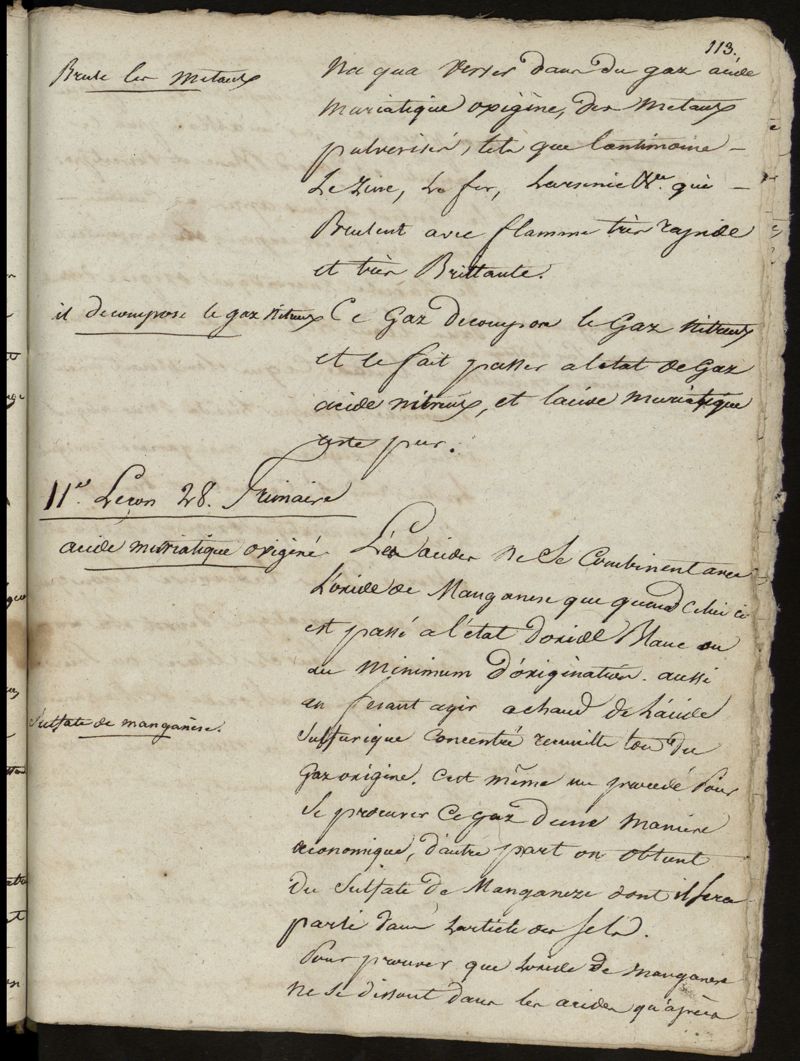 113.
Brule les Metaux
n'a qua verser dans du gaz acide
muriatique oxigène, des Metaux
pulverisés, tels que l'antimoine –
Le Zinc, Le fer, L'arsenic &ca. qui –
Brulent avec flamme très rapide
et très Brillante.
il decompose le gaz nitreux
Ce Gaz decompose le Gaz nitreux
et le fait passer a letat de Gaz
acide nitreux, et lacide muriatique
reste pur.
11e. Leçon 28. Frimaire
acide muriatique oxigéné
Les acides ne se Combinent avec
L'oxide de Manganese que quand Celui ci
est passé a l'état d'oxide Blanc ou
au Minimum d'oxigination. aussi
en fesant agir a chaud de l'acide
Sulfurique Concentré recueille ton du
Gaz oxigène. C'est même un procedé Pour
Se procurer Ce gaz d'une Maniere
œconomique, d'autre part on obtient
Sulfate de manganèse.
Du Sulfate de Manganeze dont il sera
parlé dans L'article des sels.
Pour prouver que L'oxide de manganese
ne se dissout dans les acides qu'après